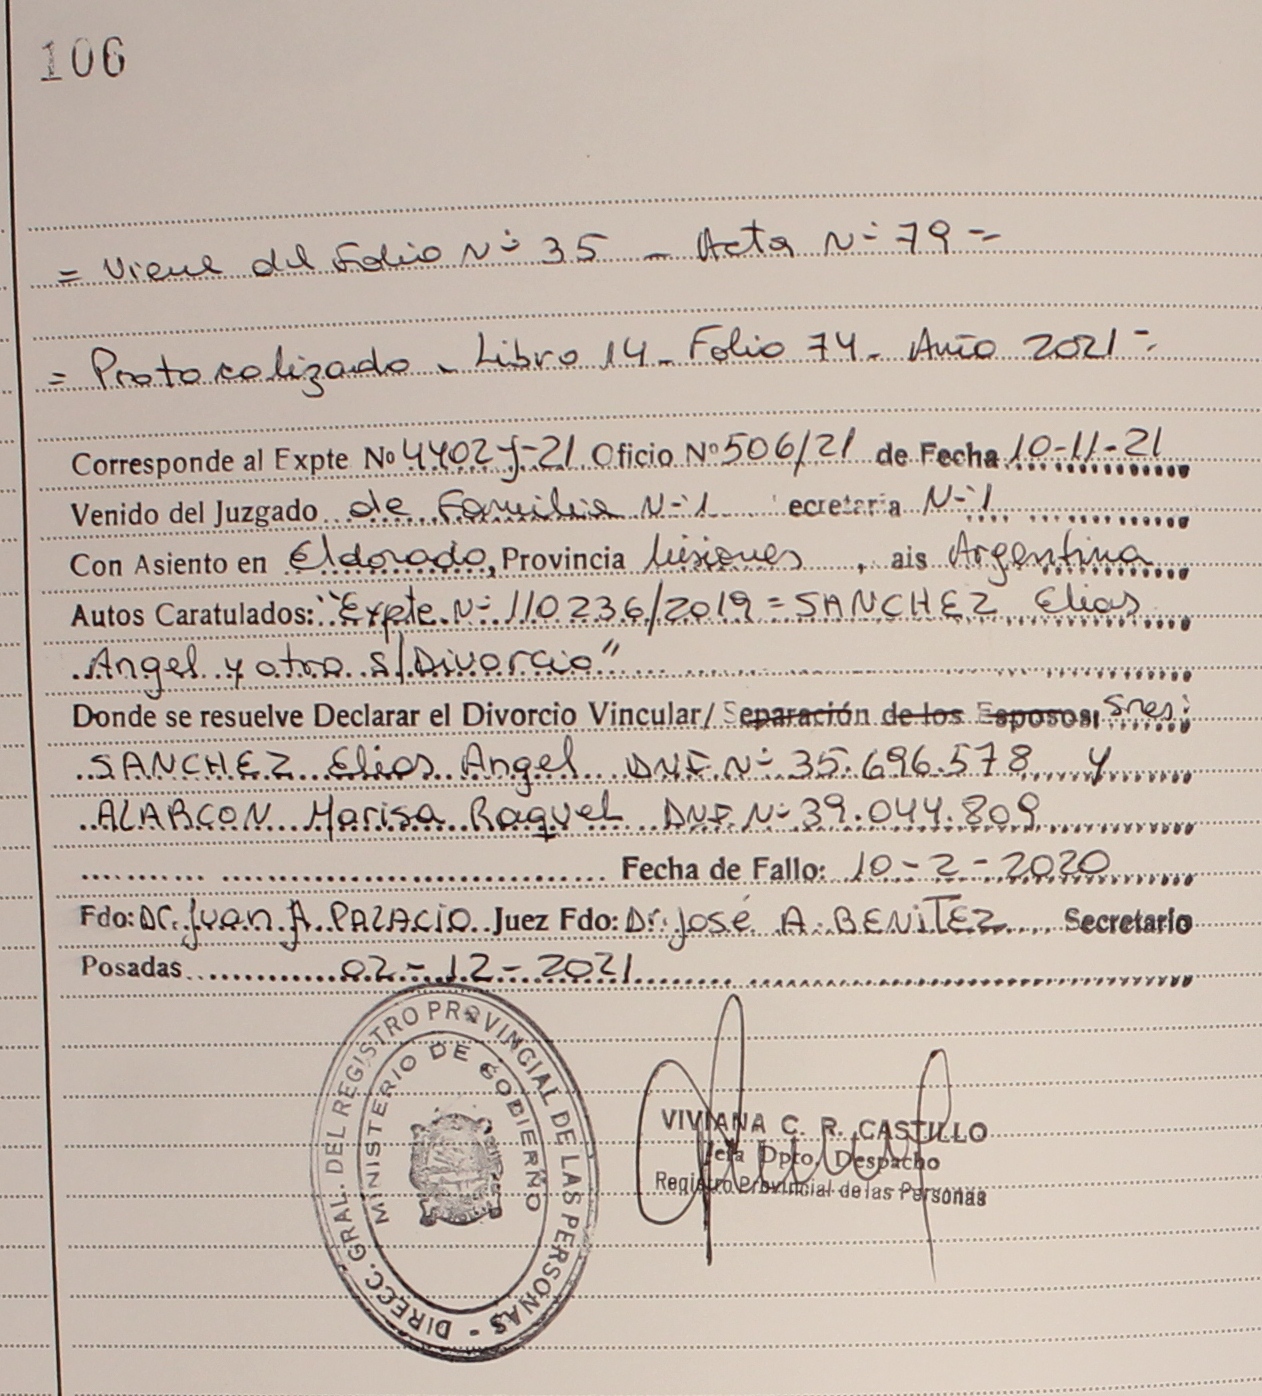 106
= Viene del Folio Nº 35 - Acta Nº 79 =
= Protocolizado - Libro 14 - Folio 74 - Año 2021 =
Corresponde al Expte Nº 4402-J-21 Oficio Nº 506/21 de Fecha 10-11-21
Venido del Juzgado de Familia Nº 1 ecretaria Nº 1
Con Asiento en Eldorado, Provincia Misiones, ais Argentina
Autos Caratulados: "Expte Nº 110236/2019 = SANCHEZ Elias
Angel y otra s/Divorcio"
Donde se resuelve Declarar el Divorcio Vincular/ Separación de los Esposos: Sres:
SANCHEZ Elias Angel DNI Nº 35.696.578 y
ALARCON Marisa Raquel DNI Nº 39.044.809
Fecha de Fallo: 10-2-2020
Fdo: Dr. Juan A. PALACIO Juez Fdo: Dr. José A. BENITEZ Secretario
Posadas 02-12-2021
DIRECC. GRAL. DEL REGISTRO PROVINCIAL DE LAS PERSONAS -
MINISTERIO DE GOBIERNO
VIVIANA C. R. CASTILLO
Jefa Dpto. Despacho
Registro Provincial de las Personas